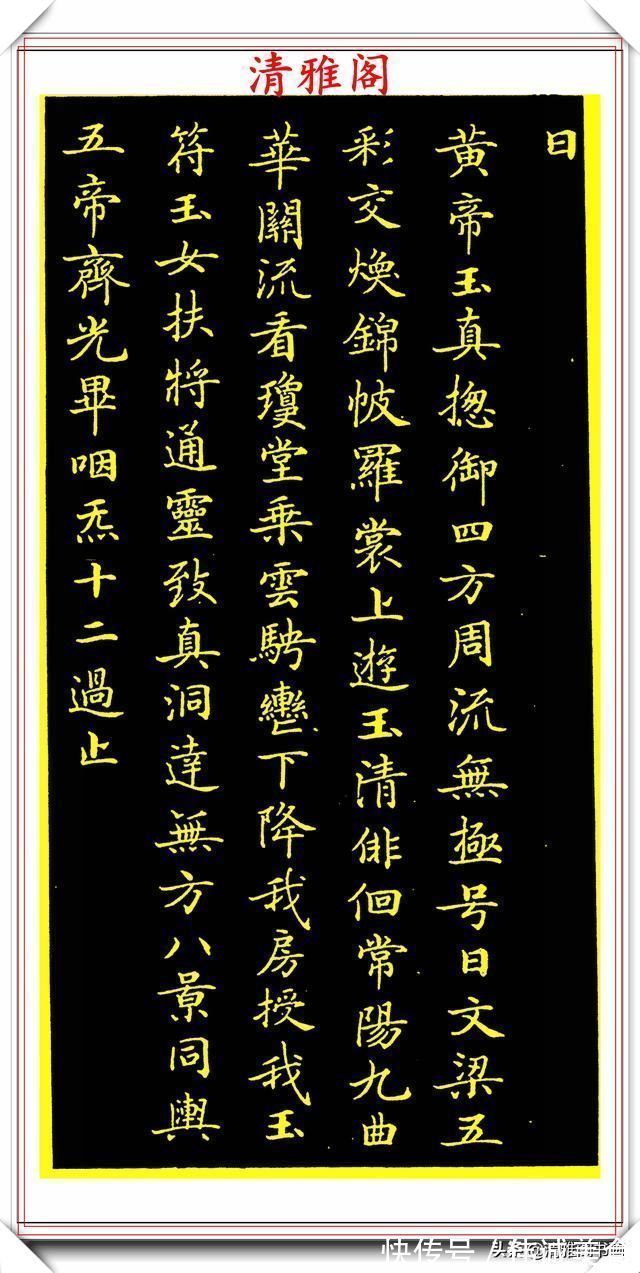 清雅阁
曰
黄帝玉真揔御四方周流無極号曰文梁五
彩交煥錦帔羅裳上遊玉清俳佪常陽九曲
華關流看瓊堂乗雲騁轡下降我房授我玉
符玉女扶將通靈致真洞達無方八景同輿
五帝齊光畢咽炁十二過止
快传号